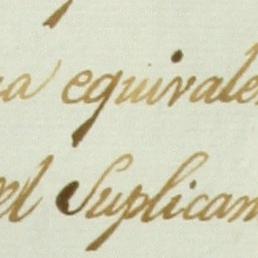 a equivale
el Suplican